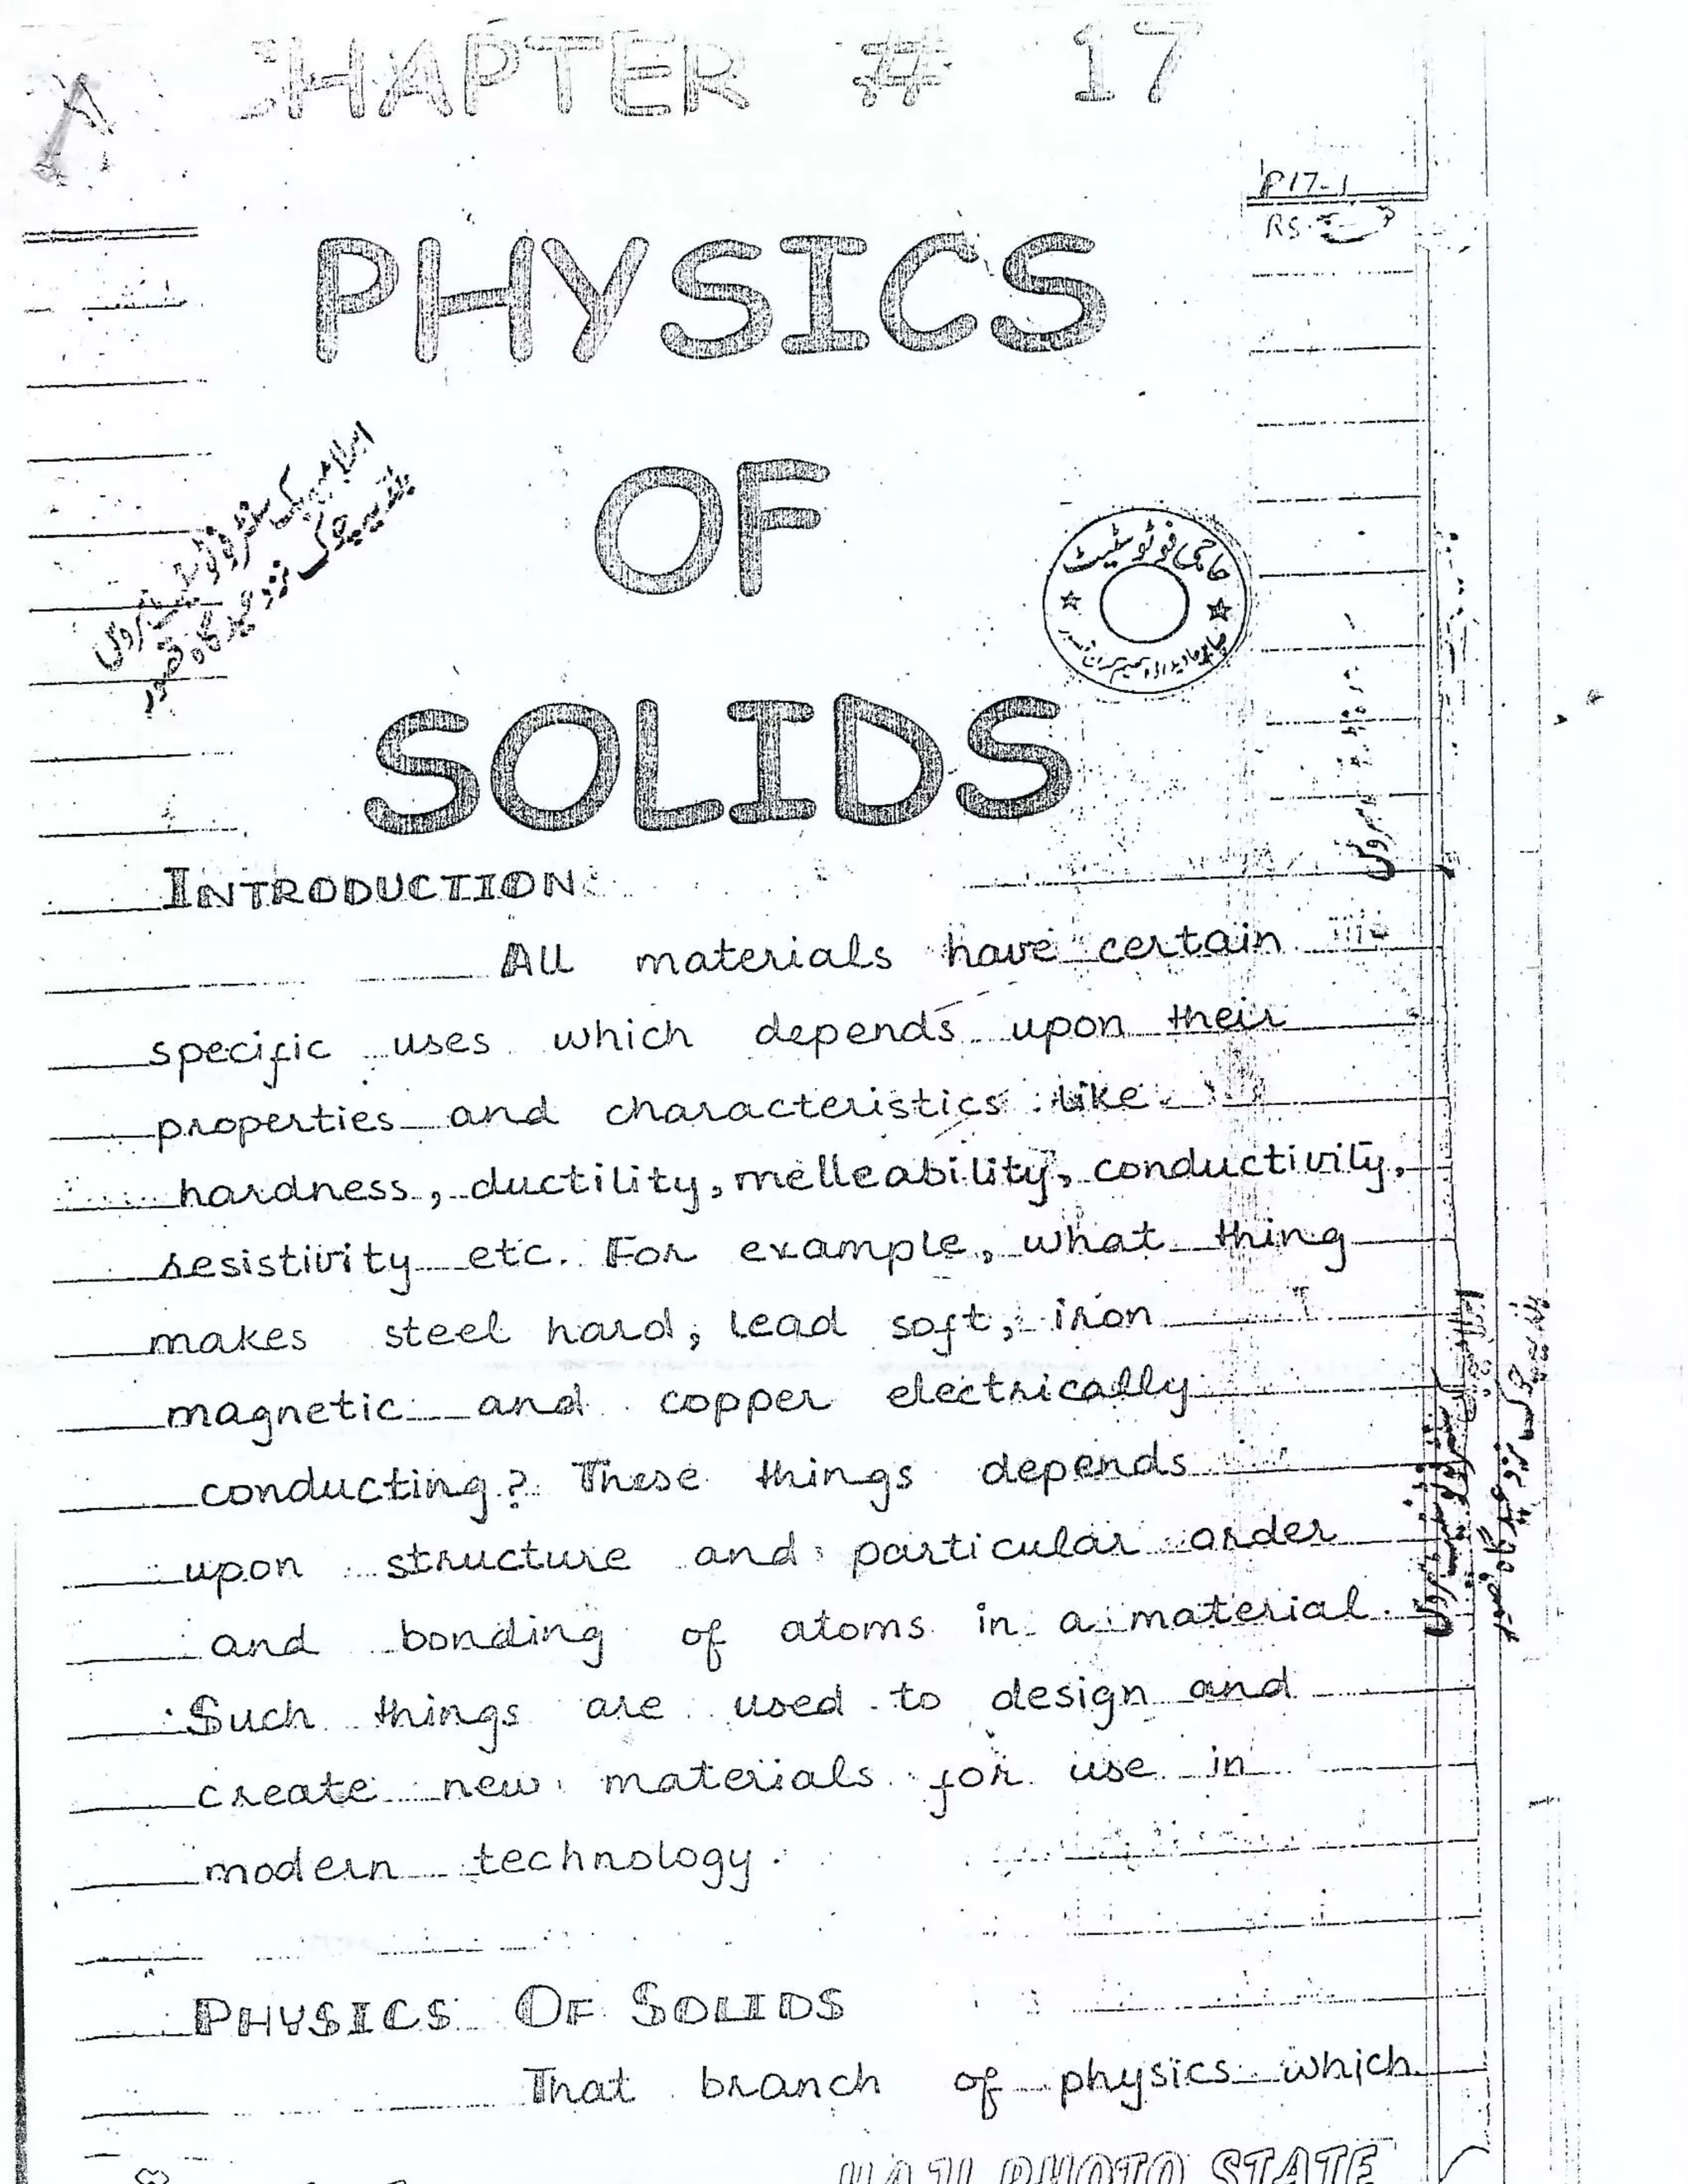 CHAPTER # 17
P17-1
RS.
PHYSICS
OF
SOLIDS
حاجی فوٹو سٹیٹ
INTRODUCTION:
All materials have certain
specific uses which depends upon their
properties and characteristics like
hardness, ductility, melleability, conductivity,
resistivity etc. For example, what thing
makes steel hard, lead soft, iron
magnetic and copper electrically
conducting? These things depends
upon structure and particular order
and bonding of atoms in a material.
Such things are used to design and
create new materials for use in
modern technology.
PHYSICS OF SOLIDS
That branch of physics which
HAJI PHOTO STATE